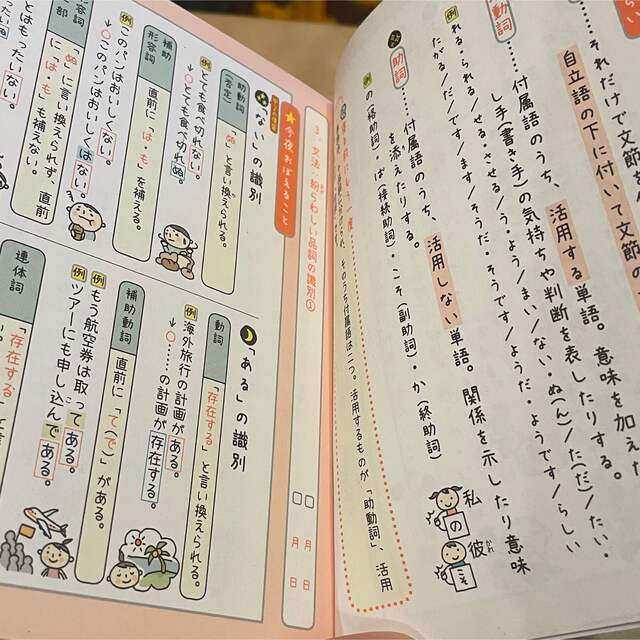 らい
……それだけで文節を
自立語の下に付いて文節の
助動詞
……付属語のうち、活用する単語。意味を加えた
し手(書き手)の気持ちや判断を表したりする。
例
れる・られる/せる・させる/う・よう/まい/ない・ぬ(ん)/た(だ)/たい・
たがる/だ/です/ます/そうだ・そうです/ようだ・ようです/らしい
助詞
……付属語のうち、活用しない単語。関係を示したり意味
を添えたりする。
例
の(格助詞)・ば(接続助詞)・こそ(副助詞)・か(終助詞)
私
の
彼
かれ
そのうち付属語は二つ。活用するものが「助動詞」、活用
3.文法:紛らわしい品詞の識別①
□ 月 日
□ 月 日
★今夜おぼえること
「ない」の識別
助動詞
(否定)
「ぬ」と言い換えられる。
例
とても食べ切れない。
↓○とても食べ切れぬ。
補助
形容詞
直前に「は・も」を補える。
例
このパンはおいしくない。
↓○このパンはおいしくはない。
形容詞
部
「ぬ」に言い換えられず、直前
に「は・も」を補えない。
もったいない。
「ある」の識別
動詞
「存在する」と言い換えられる。
例
海外旅行の計画がある。
↓○……の計画が存在する。
補助動詞
直前に「て(で)」がある。
例
もう航空券は取ってある。
例
ツアーにも申し込んである。
連体詞
「存在する」と言